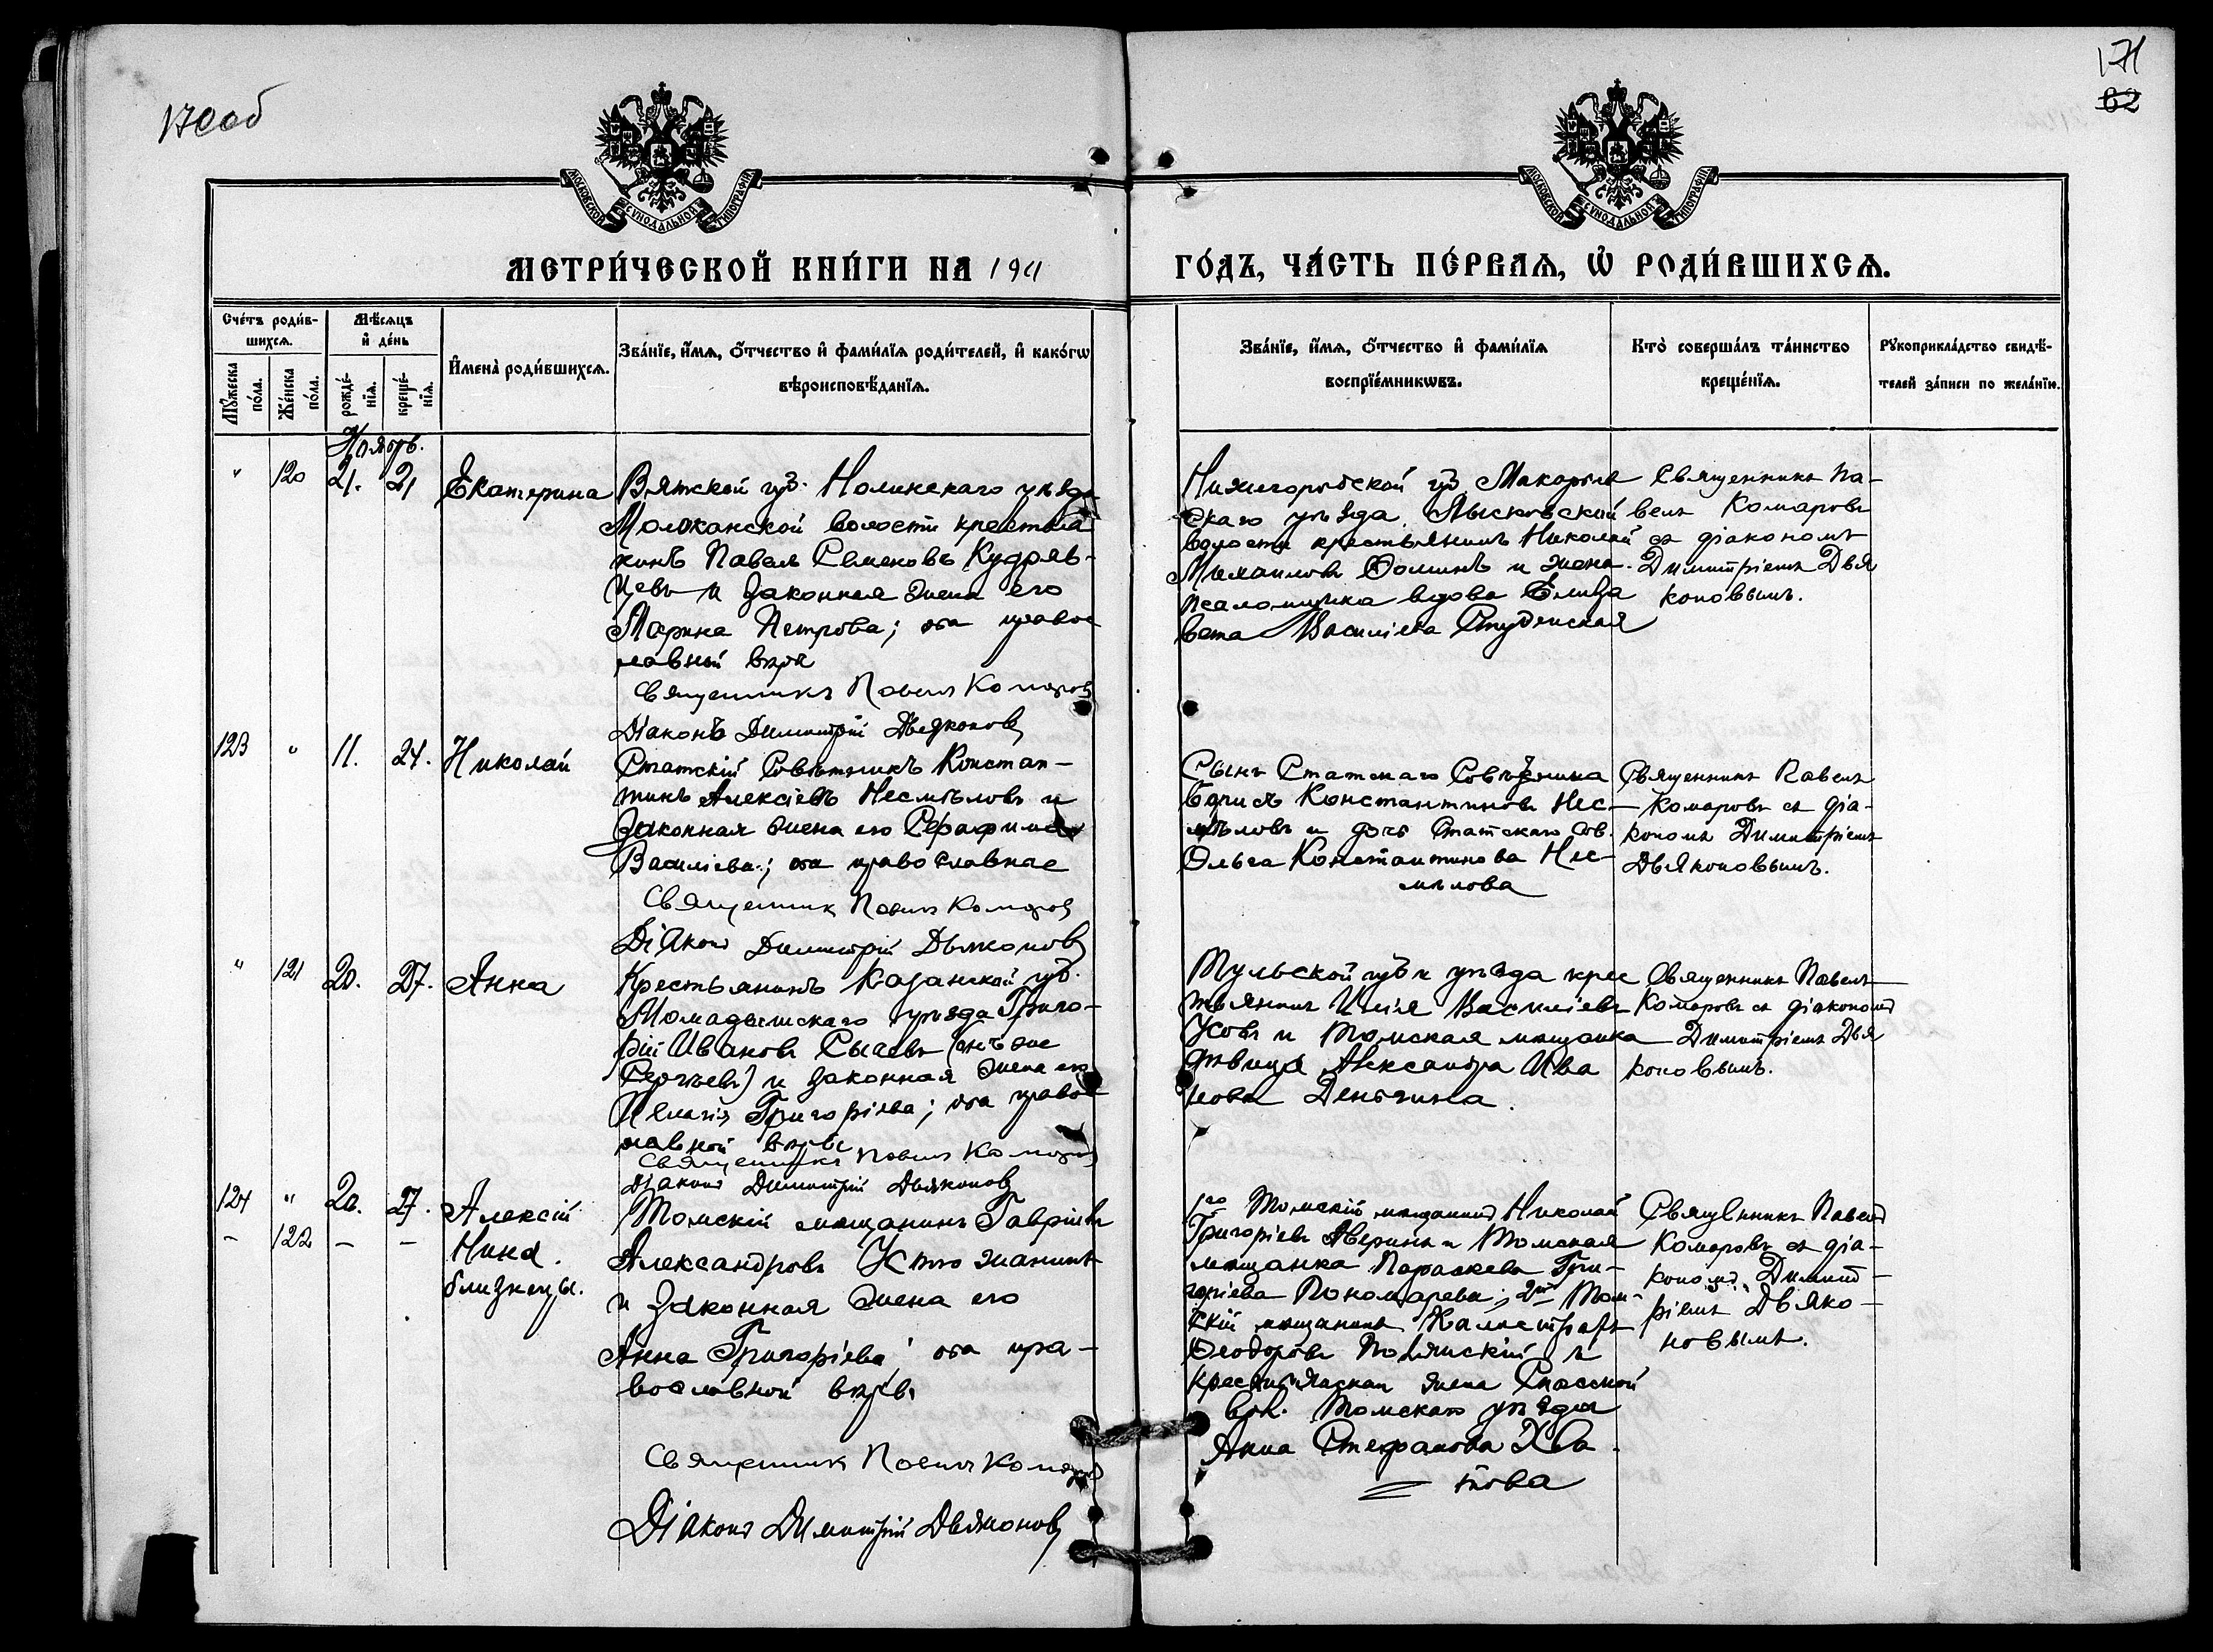 170об
171
62
МОСКОВСКОЙ СѴНОДАЛЬНОЙ ТИПОГРАФІИ
МОСКОВСКОЙ СѴНОДАЛЬНОЙ ТИПОГРАФІИ
МЕТРИ́ЧЕСКОЙ КНИ́ГИ НА 1911
ГО́ДЪ, ЧА́СТЬ ПЕ́РВАѦ, Ѡ РОДИ́ВШИХСѦ.
Сче́тъ роди́в-
шихсѧ.
Мꙋ́жеска по́ла.
Же́нска по́ла.
Мѣ́сѧцъ и де́нь
рожде́-
нїѧ.
креще́-
нїѧ.
Имена̀ роди́вшихсѧ.
Зва́нїе, и́мѧ, о́тчество и фами́лїѧ роди́телей, и како́гѡ
вѣроисповѣ́данїѧ.
Зва́нїе, и́мѧ, о́тчество и фами́лїѧ
воспрїе́мникѡвъ.
Кто̀ соверша́лъ та́инство
креще́нїѧ.
Рꙋкоприкла́дство свидѣ́-
телей за́писи по жела́нїю.
Ноябрь.
" 120 21. 21 Екатерина
Вятской губ. Нолинскаго уѣзда
волости крестья
нинъ Павелъ Семеновъ Кудряв-
цевъ и законная жена его
Марина Петрова; оба правос
лавной вѣры
Священникъ Павелъ Комаровъ
Діаконъ Димитрій Дьяконовъ
Нижегородской губ Макарьев
скаго уѣзда, Лысковской
волости крестьянинъ Николай
Михаиловъ Ѳоминъ и жена
псаломщика вдова Елиза
вета Василіева Студенская
Священникъ Па-
велъ Комаровъ
съ діакономъ
Димитріемъ Дья
коновымъ.
123 " 11. 24. Николай
Статскій Совѣтникъ Констан-
тинъ Алексіевъ Несмѣловъ и
законная жена его Серафима
Василіева; оба православные
Священникъ Павелъ Комаровъ
Діаконъ Димитрій Дьяконовъ
Сынъ Статскаго Совѣтника
Борисъ Константиновъ Нес-
мѣловъ и дочь Статскаго Сов.
Ольга Константинова Нес-
мѣлова
Священникъ Павелъ
Комаровъ съ діа-
кономъ Димитріемъ
Дьяконовымъ.
" 121 20. 27. Анна
Крестьянинъ Казанской губ.
Мамадышскаго уѣзда Григо-
рій Ивановъ Сысаевъ (онъ же
Сергѣевъ) и законная жена его
Пелагія Григоріева; оба правос
лавной вѣры
Священникъ Павелъ Комаровъ
Діаконъ Димитрій Дьяконовъ
Тульской губ и уѣзда крес
тьянинъ Илія Василіевъ
Усовъ и Томская мѣщанка
дѣвица Александра Ива
нова Деньгина.
Священникъ Павелъ
Комаровъ съ діакономъ
Димитріемъ Дья
коновымъ.
124 " 20. 27. Алексій
- 122 - - Нина.
близнецы.
Томскій мѣщанинъ Гавріилъ
Александровъ Устюжанинъ
и законная жена его
Анна Григоріева; оба пра-
вославной вѣры
Священникъ Павелъ Комаровъ
Діаконъ Димитрій Дьяконовъ
1го Томскій мѣщанинъ Николай
Григоріевъ Аверинъ и Томская
мѣщанка Параскева Гри-
горіева Пономарева; 2й Том-
скій мѣщанинъ Каллистратъ
Ѳеодоровъ и
крестьянская жена Спасской
вол. Томскаго уѣзда
Анна Стефанова Хва-
това
Священникъ Павелъ
Комаровъ съ діа-
кономъ Димит-
ріемъ Дьяко-
новымъ.